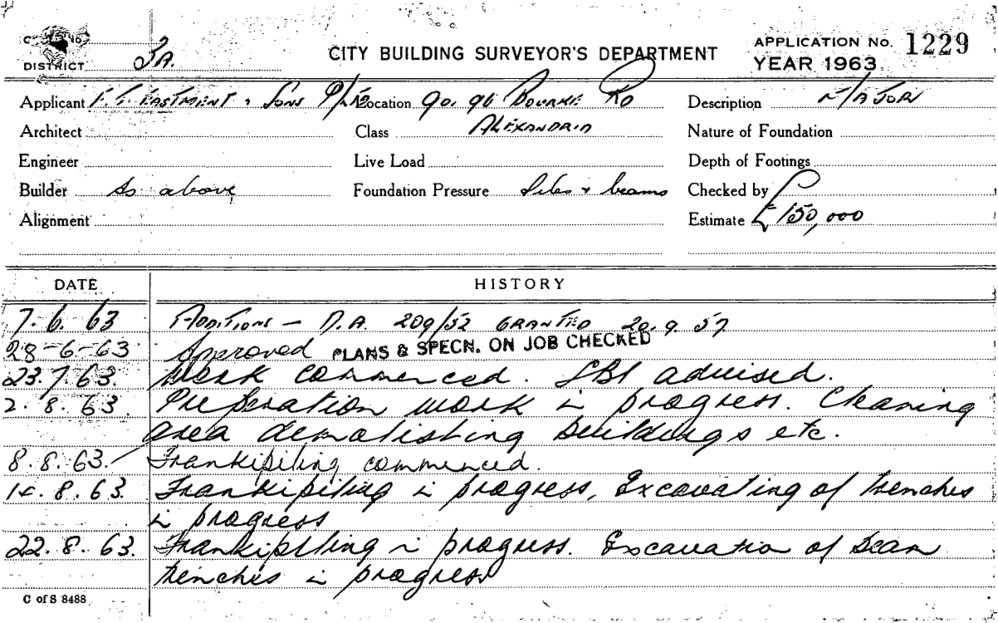 CITY BUILDING SURVEYOR'S DEPARTMENT
APPLICATION No. 1229
DISTRICT 3A.
YEAR 1963
Applicant F. T. EASTMENT & SONS P/L Location 90-96 BOURKE RD Description F/A JOR
Architect Class ALEXANDRIA Nature of Foundation
Engineer Live Load Depth of Footings
Builder As above Foundation Pressure Piles & beams Checked by
Alignment Estimate £150,000
DATE HISTORY
7.6.63 ADDITIONS — D.A. 209/52 GRANTED 20.9.57
28-6-63 Approved PLANS & SPECN. ON JOB CHECKED
23.7.63. Work commenced. SBI advised.
2.8.63. Preparation work in progress. Cleaning
area demolishing buildings etc.
8.8.63. Frankipiling commenced.
14.8.63. Frankipiling in progress, Excavating of trenches
in progress
22.8.63. Frankipiling in progress. Excavation of beam
trenches in progress
C of S 8488